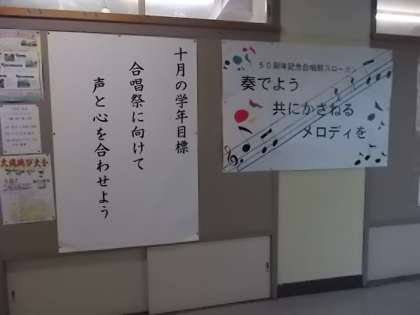 十月の学年目標
合唱祭に向けて
声と心を合わせよう
50周年記念合唱祭スローガン
奏でよう
共にかさねる
メロディを